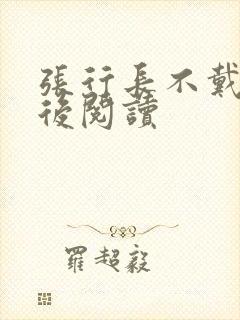 張行長不戴
後閱讀
羅超毅